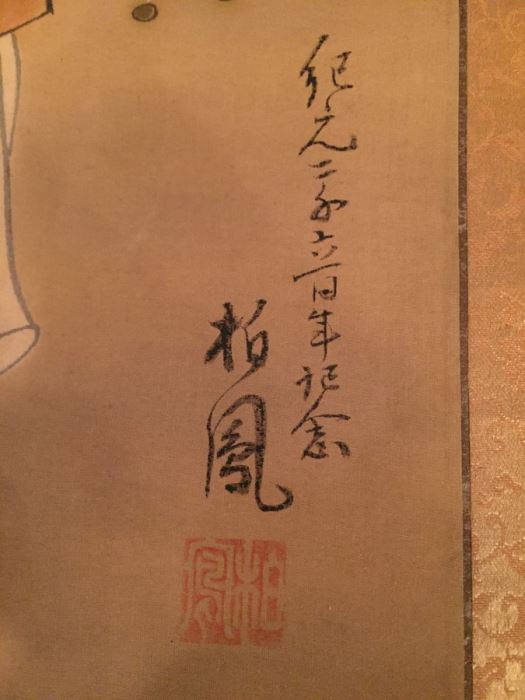 紀元二千六百年記念
柏鳳
柏鳳